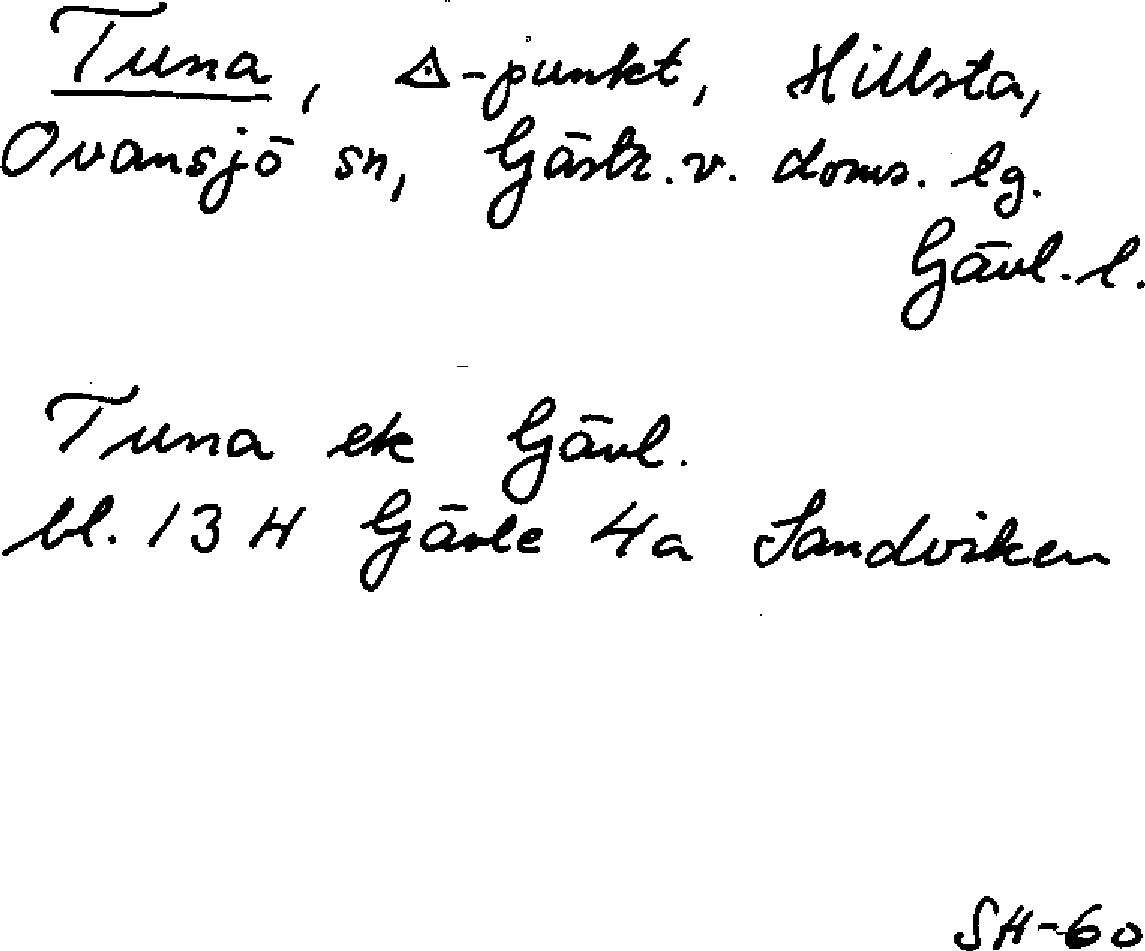 Tuna, △-punkt, Hillsta,
Ovansjö sn, Gästr. v. doms. lg.
Gävl. l.
Tuna ek Gävl.
bl. 13 H Gävle 4a Sandviken
SH-60